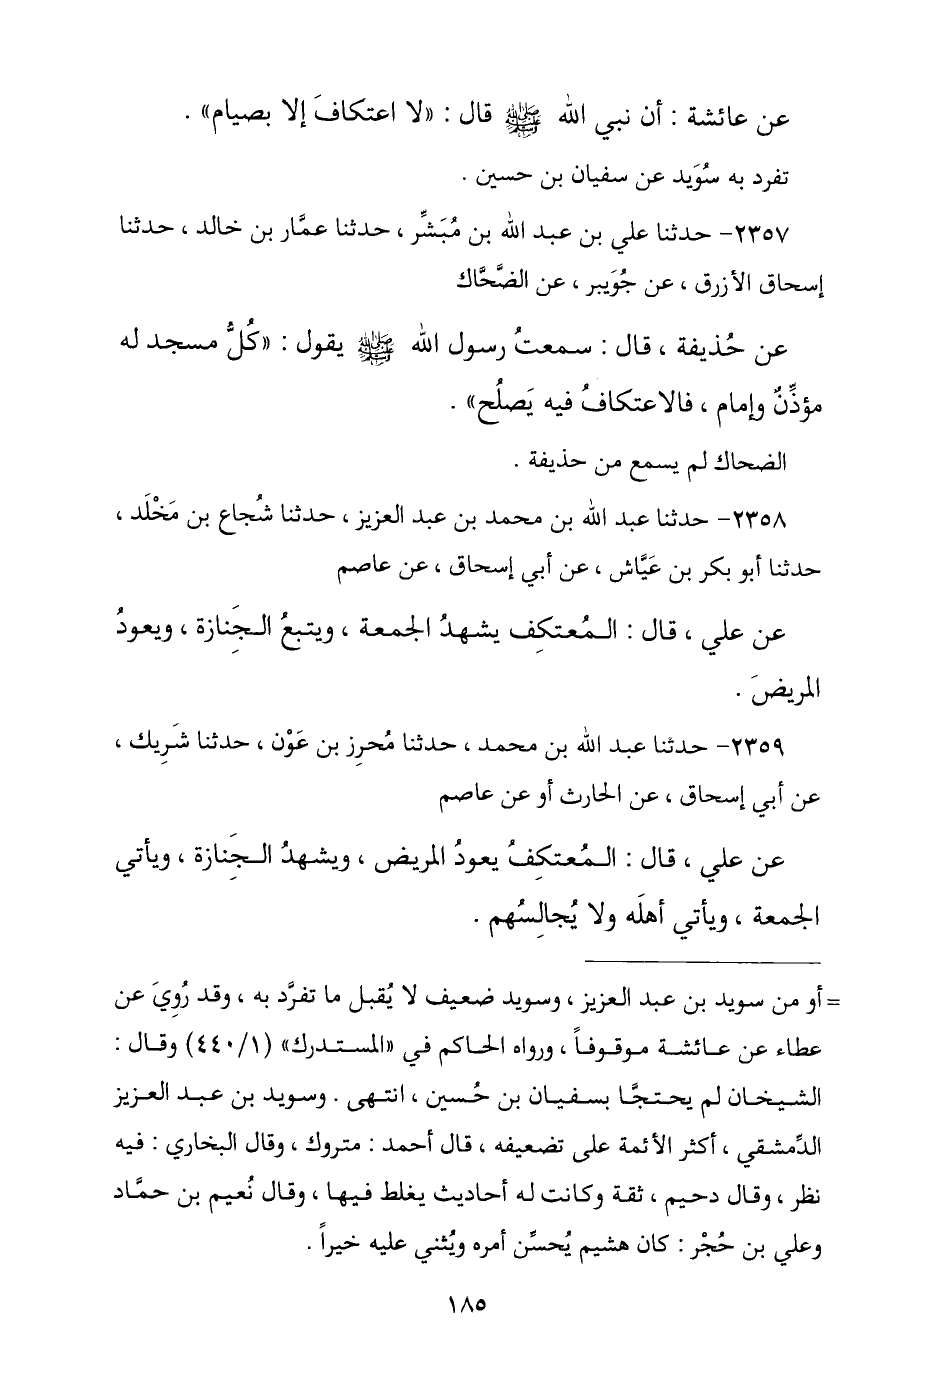 عن عائشة : أن نبي الله ﷺ قال : «لا اعتكافَ إلا بصيام» .
تفرد به سُوَيد عن سفيان بن حسين .
٢٣٥٧- حدثنا علي بن عبد الله بن مُبَشِّر ، حدثنا عمَّار بن خالد ، حدثنا
إسحاق الأزرق ، عن جُوَيبر ، عن الضَّحَّاك
عن حُذيفة ، قال : سمعتُ رسول الله ﷺ يقول : «كُلُّ مسجد له
مؤذِّنٌ وإمام ، فالاعتكافُ فيه يَصلُح» .
الضحاك لم يسمع من حذيفة .
٢٣٥٨- حدثنا عبد الله بن محمد بن عبد العزيز ، حدثنا شُجاع بن مَخْلَد ،
حدثنا أبو بكر بن عَيَّاش ، عن أبي إسحاق ، عن عاصم
عن علي ، قال : المُعتكِف يشهدُ الجمعة ، ويتبعُ الجَنِازة ، ويعودُ
المريضَ .
٢٣٥٩- حدثنا عبد الله بن محمد ، حدثنا مُحرِز بن عَوْن ، حدثنا شَرِيك ،
عن أبي إسحاق ، عن الحارث أو عن عاصم
عن علي ، قال : المُعتكِفُ يعودُ المريض ، ويشهدُ الجَنِازة ، ويأتي
الجمعة ، ويأتي أهلَه ولا يُجالِسُهم .
=أو من سويد بن عبد العزيز ، وسويد ضعيف لا يُقبل ما تفرَّد به ، وقد رُوِيَ عن
عطاء عن عائشة موقوفاً ، ورواه الحاكم في «المستدرك» (١/ ٤٤٠) وقال :
الشيخان لم يحتجَّا بسفيان بن حُسين ، انتهى . وسويد بن عبد العزيز
الدِّمشقي ، أكثر الأئمة على تضعيفه ، قال أحمد : متروك ، وقال البخاري : فيه
نظر ، وقال دحيم ، ثقة وكانت له أحاديث يغلط فيها ، وقال نُعيم بن حمَّاد
وعلي بن حُجْر : كان هشيم يُحسِّن أمره ويُثني عليه خيراً .
١٨٥